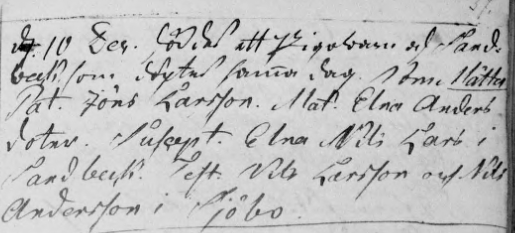 d. 10 Dec. föddes ett Pigobarn od Sand-
beck. som döptes samma dag. Nöms Kätta
Pat. Jöns Larsson. Mat. Elna Anders
doter. Suscept. Elna Nils Lars i
Sandbeck. Test. Nils Larsson och Nils
Andersson i Sjöbo.